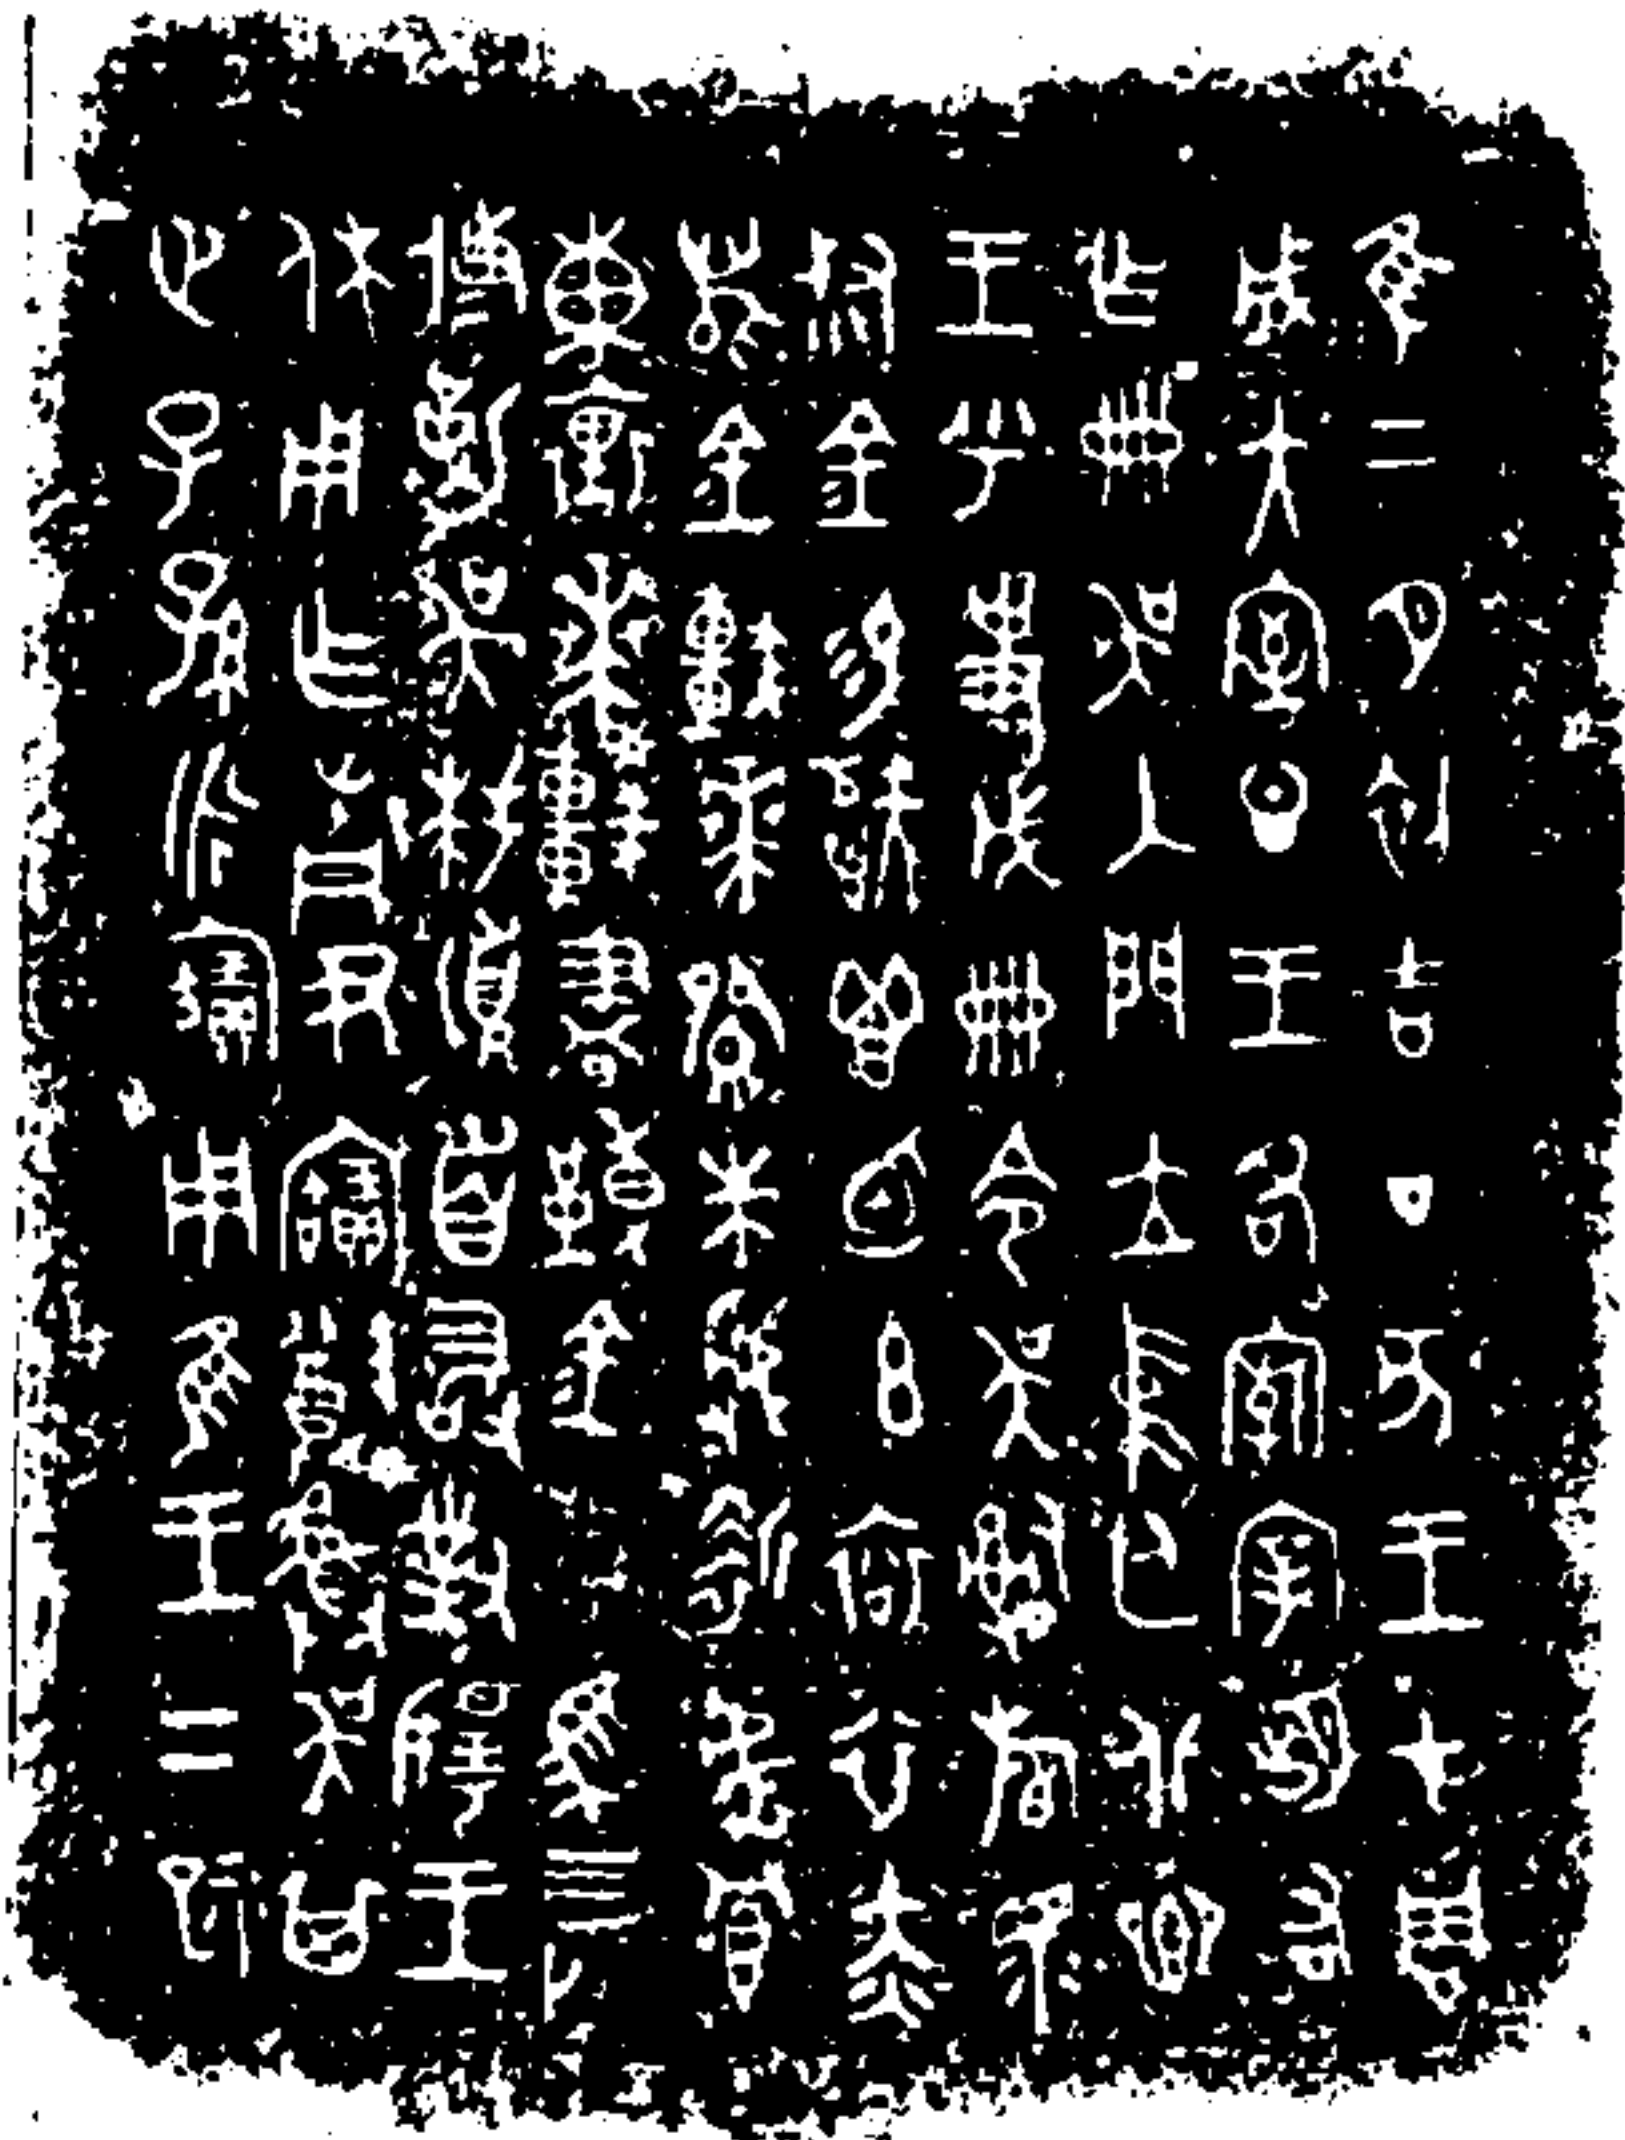 隹二月初吉丁亥王才周
成大室旦王各廟宰朏右
乍冊吳入門立中廷北鄉
王乎史戊冊令吳𤔲旃眔
叔金易鬯一卣玄袞衣
赤舄金車𠦪朱虢靳虎冟
熏裏𠦪較畫金甬馬四匹
攸勒吳拜稽首敢對揚王
休用乍青尹寶尊彝吳其
世子孫永寶用隹王二祀